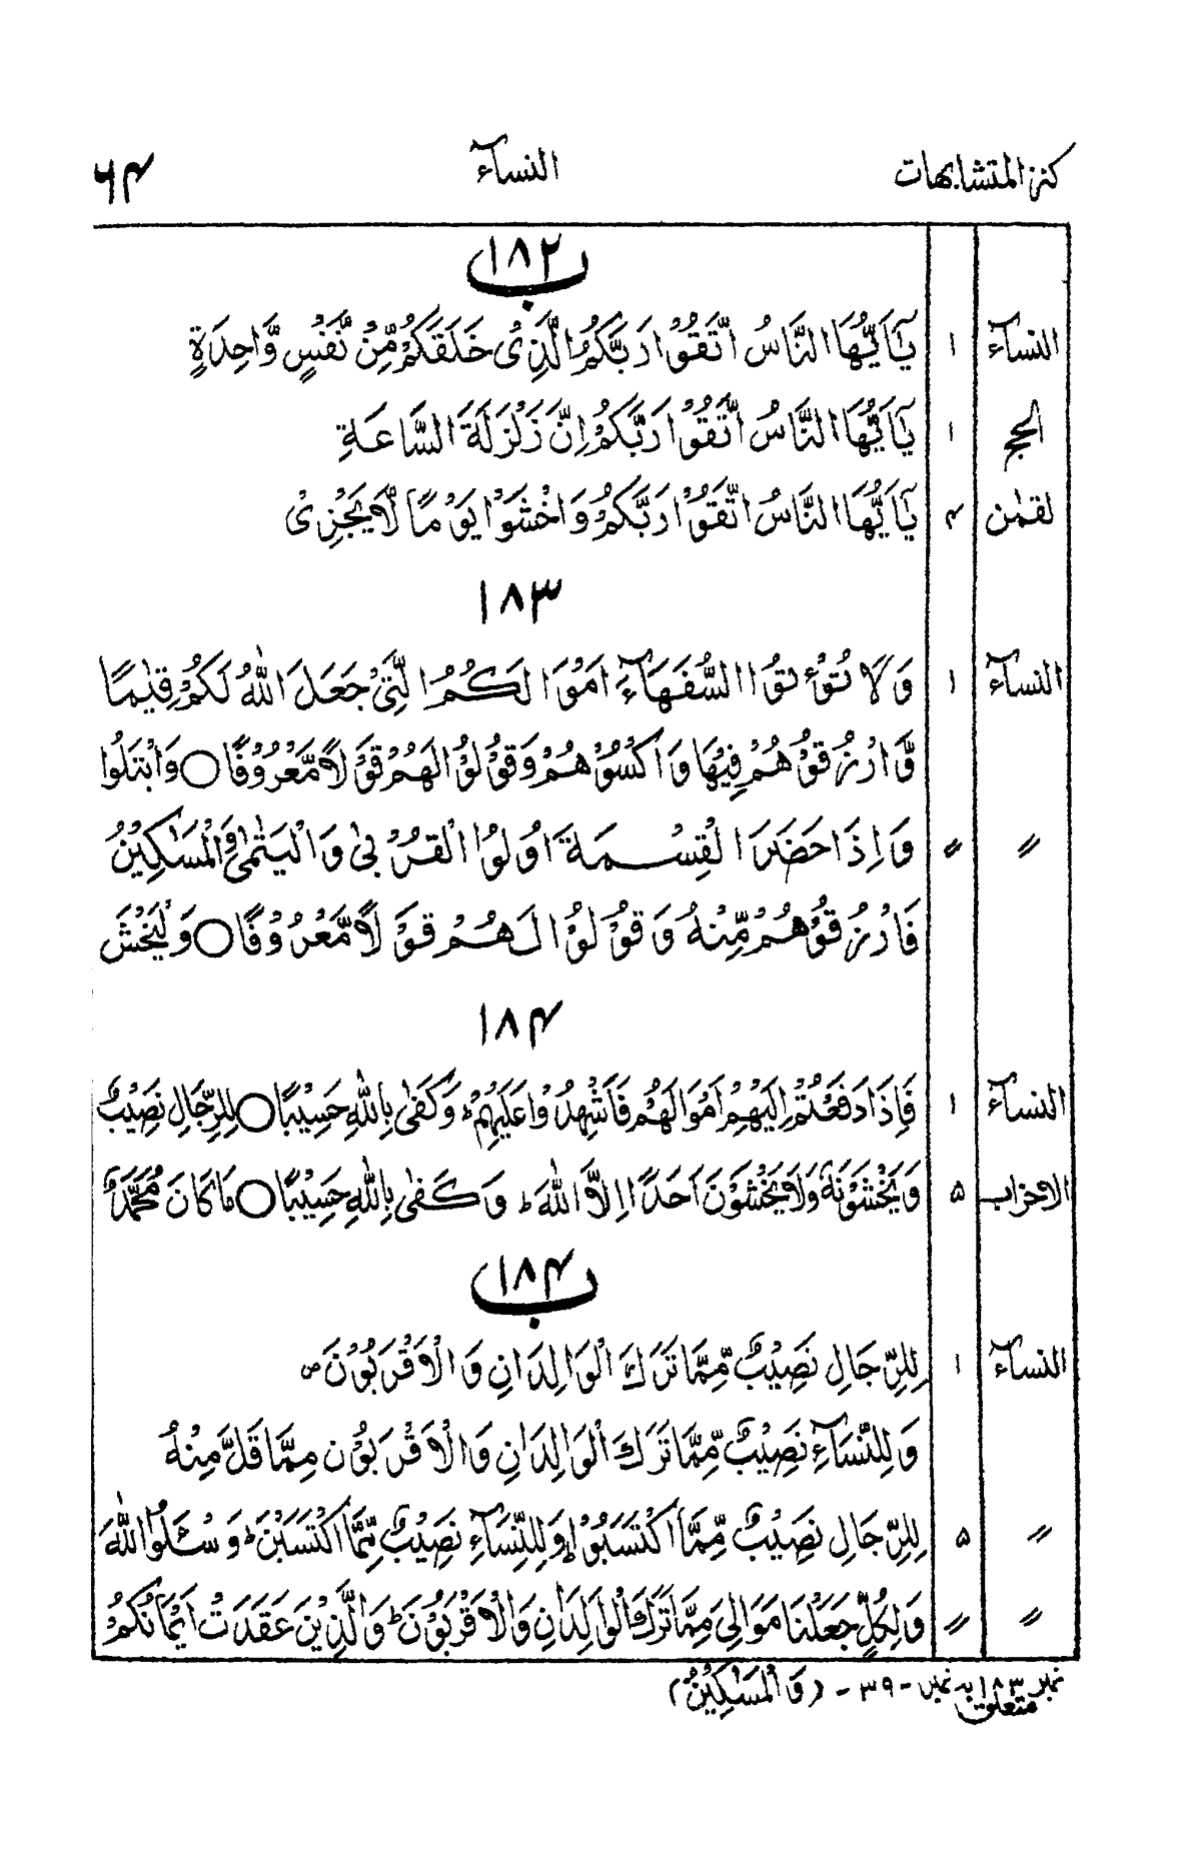 كنز المتشابهات النسآء ۶۴
۱۸۲ ب
النسآء ۱ يٰٓاَيُّهَا النَّاسُ اتَّقُوْا رَبَّكُمُ الَّذِىْ خَلَقَكُمْ مِّنْ نَّفْسٍ وَّاحِدَةٍ
الحج ۱ يٰٓاَيُّهَا النَّاسُ اتَّقُوْا رَبَّكُمْ اِنَّ زَلْزَلَةَ السَّاعَةِ
لقمٰن ۴ يٰٓاَيُّهَا النَّاسُ اتَّقُوْا رَبَّكُمْ وَاخْشَوْا يَوْمًا لَّا يَجْزِىْ
۱۸۳
النسآء ۱ وَلَا تُؤْتُوا السُّفَهَآءَ اَمْوَالَكُمُ الَّتِىْ جَعَلَ اللّٰهُ لَكُمْ قِيٰمًا
وَّارْزُقُوْهُمْ فِيْهَا وَاكْسُوْهُمْ وَقُوْلُوْا لَهُمْ قَوْلًا مَّعْرُوْفًا ○ وَابْتَلُوا
〃 〃 وَاِذَا حَضَرَ الْقِسْمَةَ اُولُوا الْقُرْبٰى وَالْيَتٰمٰى وَالْمَسٰكِيْنُ
فَارْزُقُوْهُمْ مِّنْهُ وَقُوْلُوْا لَهُمْ قَوْلًا مَّعْرُوْفًا ○ وَلْيَخْشَ
۱۸۴
النسآء ۱ فَاِذَا دَفَعْتُمْ اِلَيْهِمْ اَمْوَالَهُمْ فَاَشْهِدُوْا عَلَيْهِمْ ؕ وَكَفٰى بِاللّٰهِ حَسِيْبًا ○ لِلرِّجَالِ نَصِيْبٌ
الاحزاب ۵ وَيَخْشَوْنَهٗ وَلَا يَخْشَوْنَ اَحَدًا اِلَّا اللّٰهَ ؕ وَكَفٰى بِاللّٰهِ حَسِيْبًا ○ مَا كَانَ مُحَمَّدٌ
۱۸۴ ب
النسآء ۱ لِلرِّجَالِ نَصِيْبٌ مِّمَّا تَرَكَ الْوَالِدَانِ وَالْاَقْرَبُوْنَ ۪
وَلِلنِّسَآءِ نَصِيْبٌ مِّمَّا تَرَكَ الْوَالِدَانِ وَالْاَقْرَبُوْنَ مِمَّا قَلَّ مِنْهُ
〃 ۵ لِلرِّجَالِ نَصِيْبٌ مِّمَّا اكْتَسَبُوْا ؕ وَلِلنِّسَآءِ نَصِيْبٌ مِّمَّا اكْتَسَبْنَ ؕ وَسْـَٔلُوا اللّٰهَ
〃 〃 وَلِكُلٍّ جَعَلْنَا مَوَالِىَ مِمَّا تَرَكَ الْوَالِدَانِ وَالْاَقْرَبُوْنَ ؕ وَالَّذِيْنَ عَقَدَتْ اَيْمَانُكُمْ
نمبر ۱۸۳ متعلق بہ نمبر - ۳۹ - (وَالْمَسٰكِيْنُ)